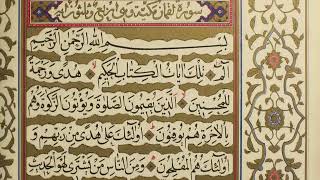 سورة لقمان مكية وهي اربع وثلثون اية
بسم الله الرحمن الرحيم
الم تلك ايات الكتاب الحكيم هدى ورحمة
للمحسنين الذين يقيمون الصلوة ويؤتون الزكوة وهم
بالاخرة هم يوقنون اولئك على هدى من ربهم و
اولئك هم المفلحون ومن الناس من يشترى لهو الحديث